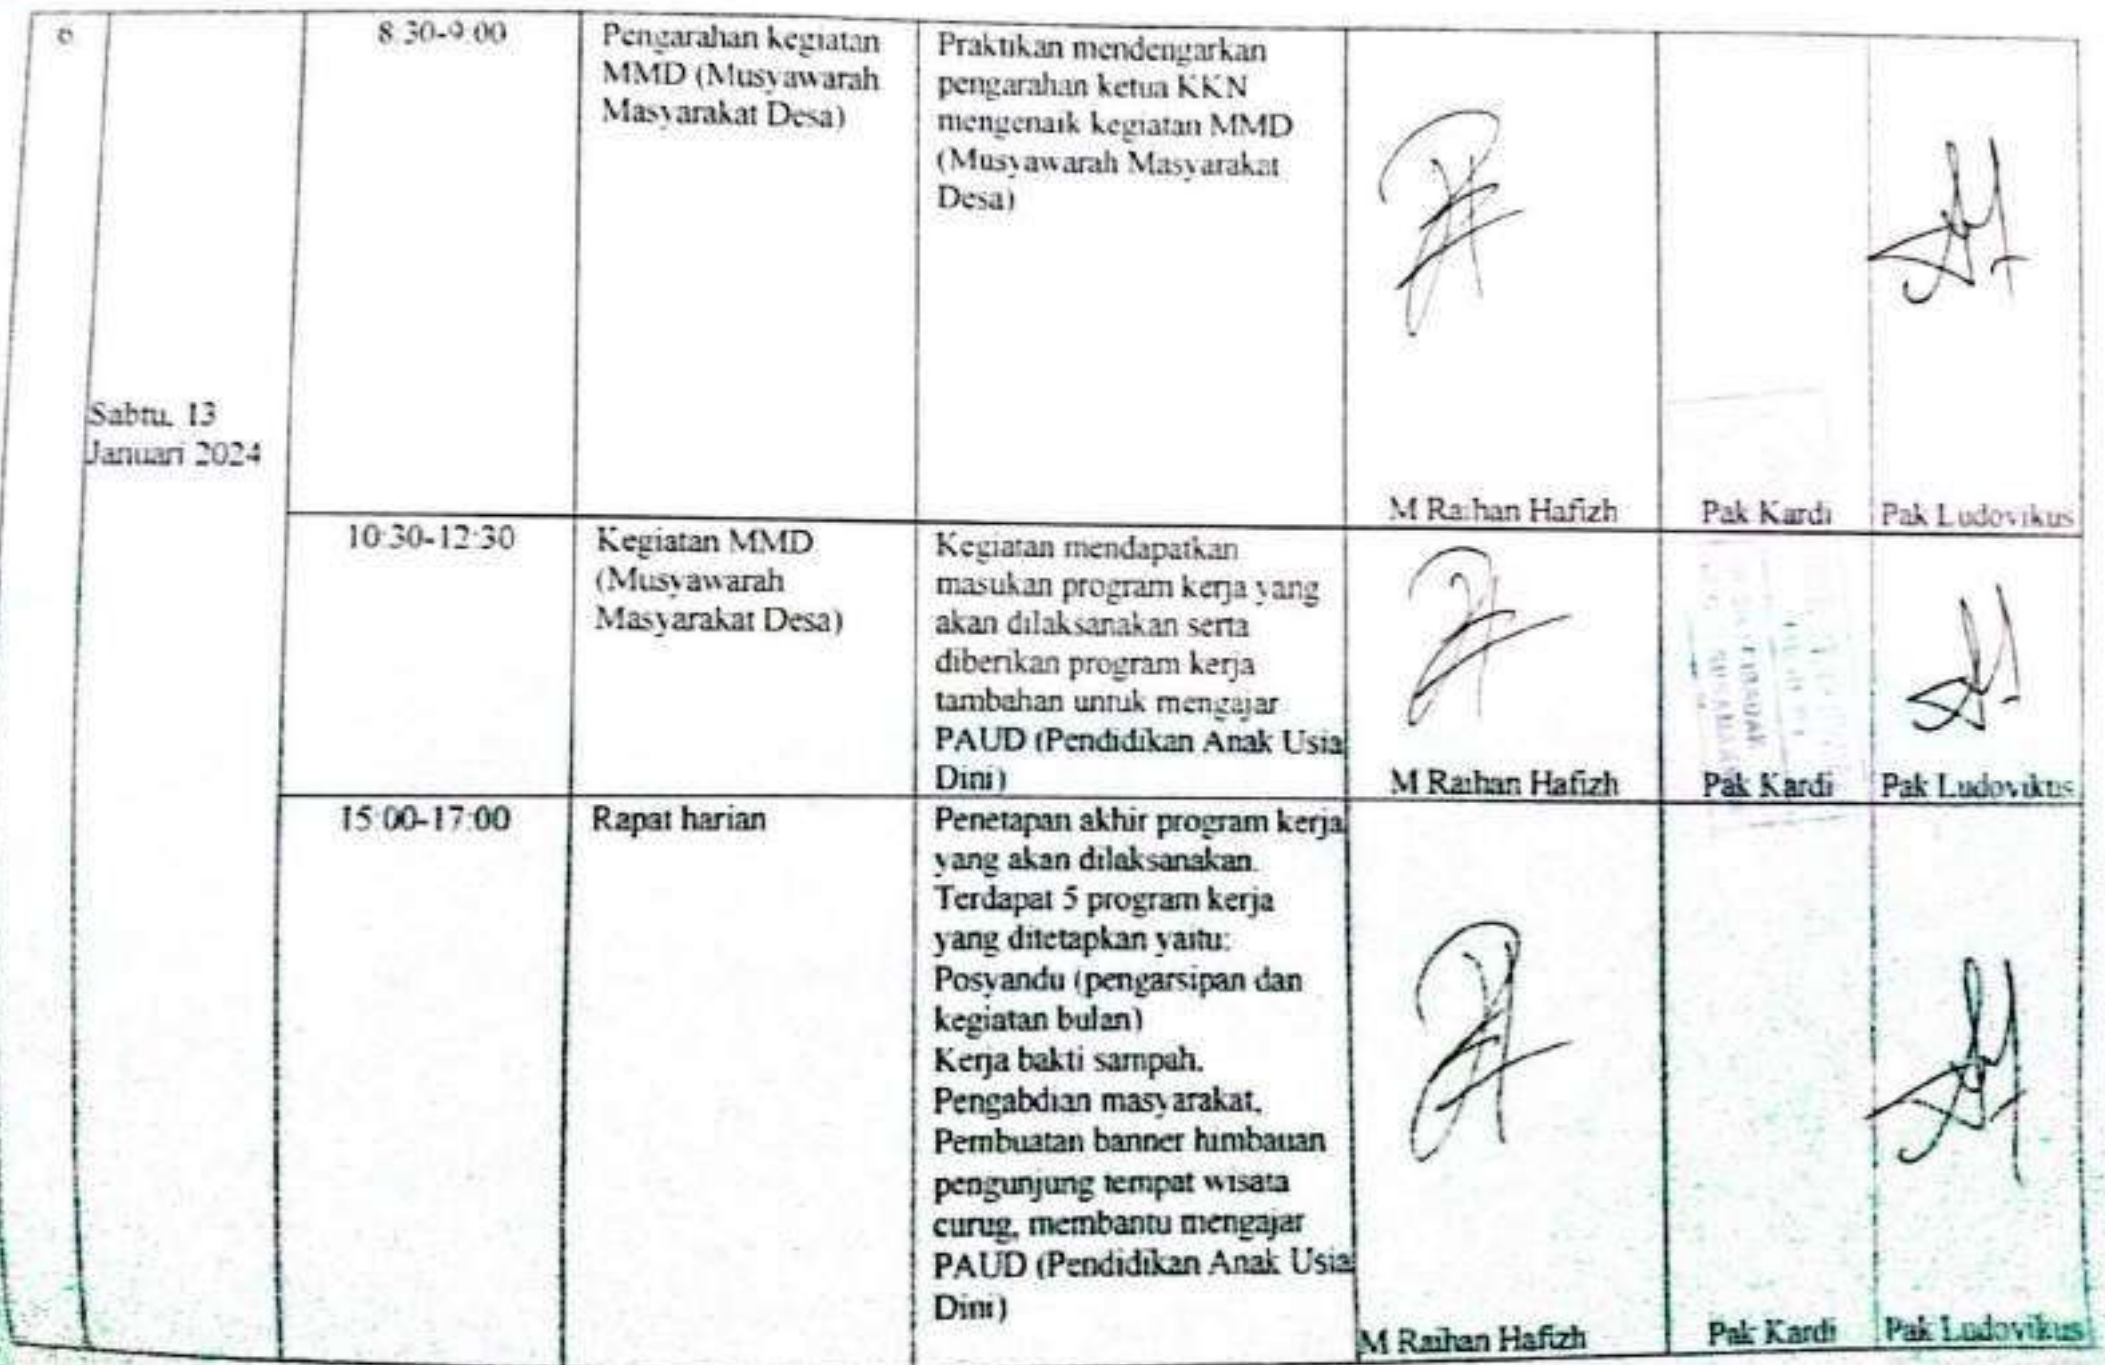 6
8:30-9:00
Pengarahan kegiatan
MMD (Musyawarah
Masyarakat Desa)
Praktikan mendengarkan
pengarahan ketua KKN
mengenaik kegiatan MMD
(Musyawarah Masyarakat
Desa)
M Raihan Hafizh
Pak Kardi
Pak Ludovikus
Sabtu, 13
Januari 2024
10:30-12:30
Kegiatan MMD
(Musyawarah
Masyarakat Desa)
Kegiatan mendapatkan
masukan program kerja yang
akan dilaksanakan serta
diberikan program kerja
tambahan untuk mengajar
PAUD (Pendidikan Anak Usia
Dini)
M Raihan Hafizh
Pak Kardi
Pak Ludovikus
15:00-17:00
Rapat harian
Penetapan akhir program kerja
yang akan dilaksanakan.
Terdapat 5 program kerja
yang ditetapkan yaitu:
Posyandu (pengarsipan dan
kegiatan bulan)
Kerja bakti sampah,
Pengabdian masyarakat,
Pembuatan banner himbauan
pengunjung tempat wisata
curug, membantu mengajar
PAUD (Pendidikan Anak Usia
Dini)
M Raihan Hafizh
Pak Kardi
Pak Ludovikus